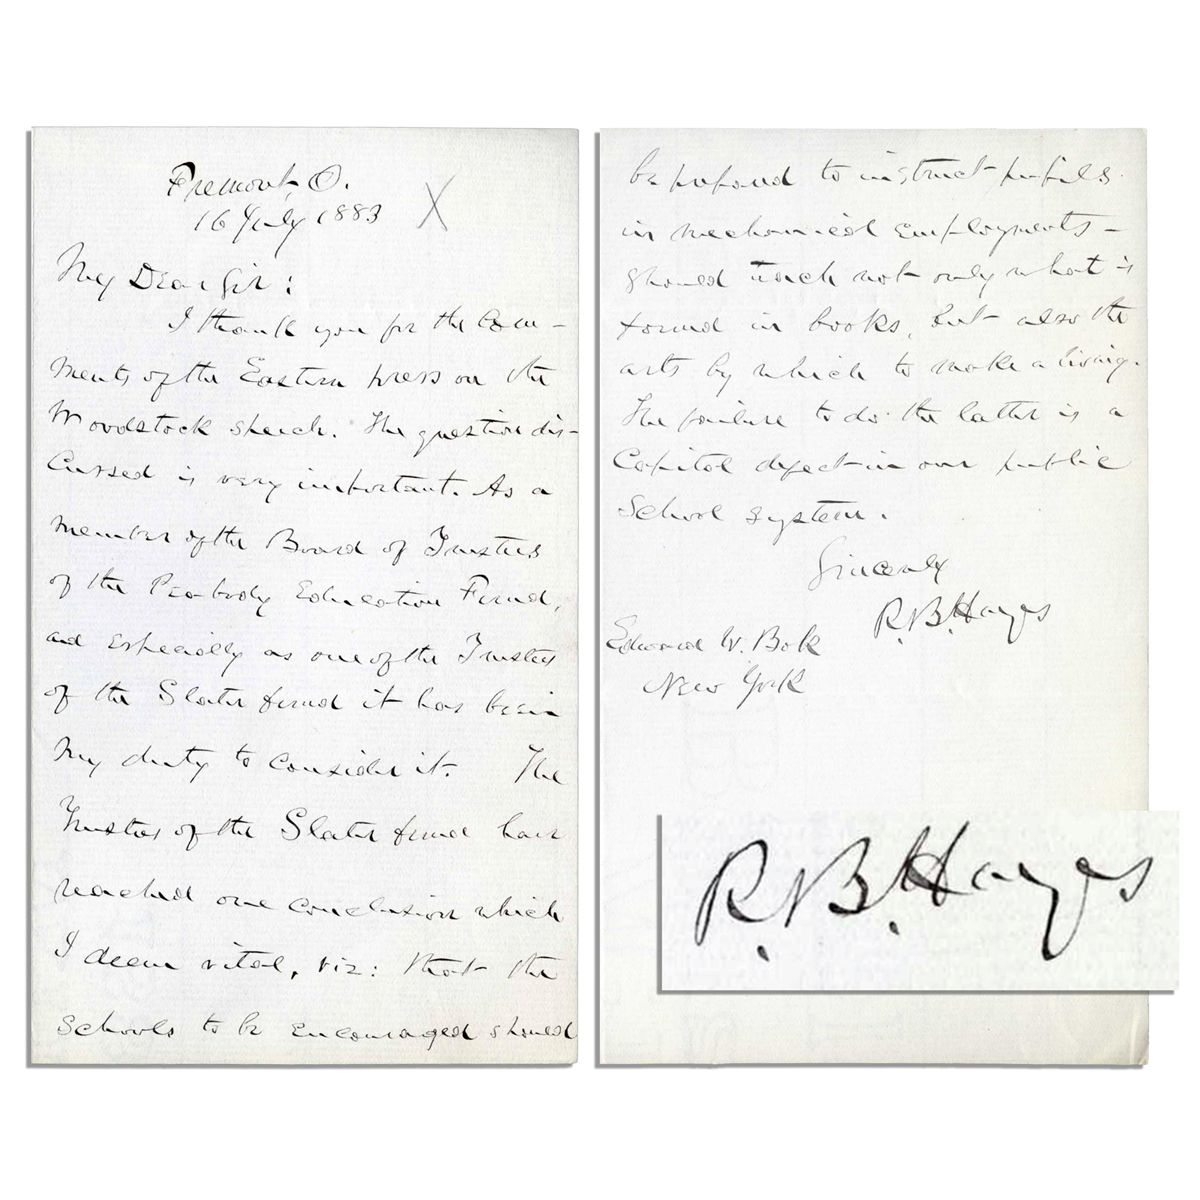 Fremont, O.
16 July 1883
X
My Dear Sir:
I thank you for the Com-
ments of the Eastern press on the
Woodstock speech. The question dis-
cussed is very important. As a
member of the Board of Trustees
of the Peabody Education Fund,
and especially as one of the Trustees
of the Slater fund it has been
my duty to consider it. The
Trustees of the Slater fund have
reached one conclusion which
I deem vital, viz: that the
schools to be encouraged should
be prepared to instruct pupils
in mechanical employments -
should teach not only what is
found in books, but also the
arts by which to make a living.
The failure to do the latter is a
Capital defect in our public
School system.
Sincerely
R. B. Hayes
Edward W. Bok
New York
R. B. Hayes